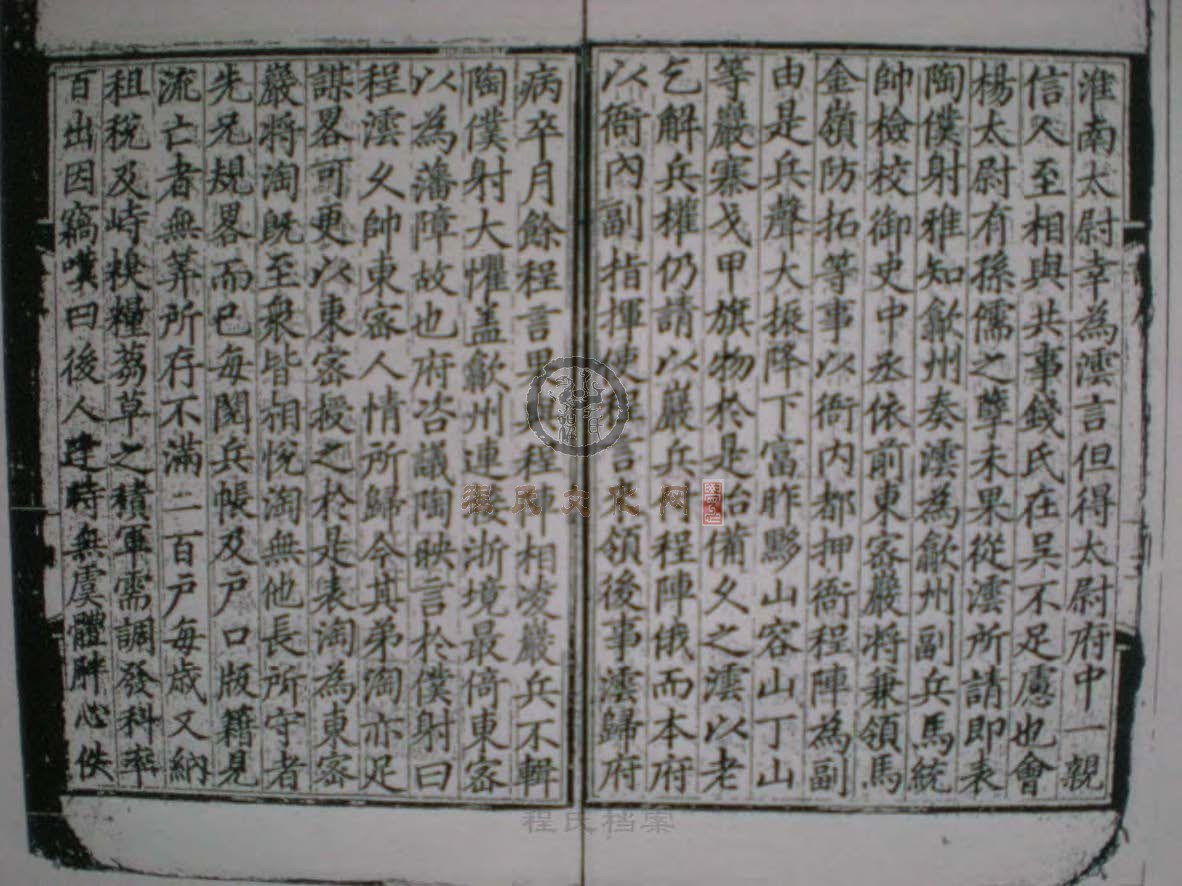 淮南太尉幸為澐言但得太尉府中一親
信人至相與共事錢氏在吴不足慮也會
楊太尉有孫儒之孽未果從澐所請即表
陶僕射雅知歙州奏澐為歙州副兵馬統
帥檢校御史中丞依前東宻巖將兼領馬
金嶺防拓等事以衙内都押衙程陣為副
由是兵聲大振降下富昨黟山容山丁山
等巖寨戈甲旗物於是始備久之澐以老
乞解兵權仍請以巖兵付程陣俄而本府
以衙内副指揮使程言來領後事澐歸府
病卒月餘程言果與程陣相凌巖兵不輯
陶僕射大懼盖歙州連接浙境最倚東宻
以為藩障故也府咨議陶映言於僕射曰
程澐久帥東宻人情所歸今其弟淘亦足
謀畧可更以東宻授之於是表淘為東宻
巖將淘既至衆皆相悅淘無他長所守者
先兄規畧而已每閱兵帳及户口版籍見
流亡者無筭所存不滿二百户每歳又納
租稅及峙糗糧芻草之積軍需調發科率
百出因竊嘆曰後人逢時無虞體胖心佚
程氏文化网
程氏档案